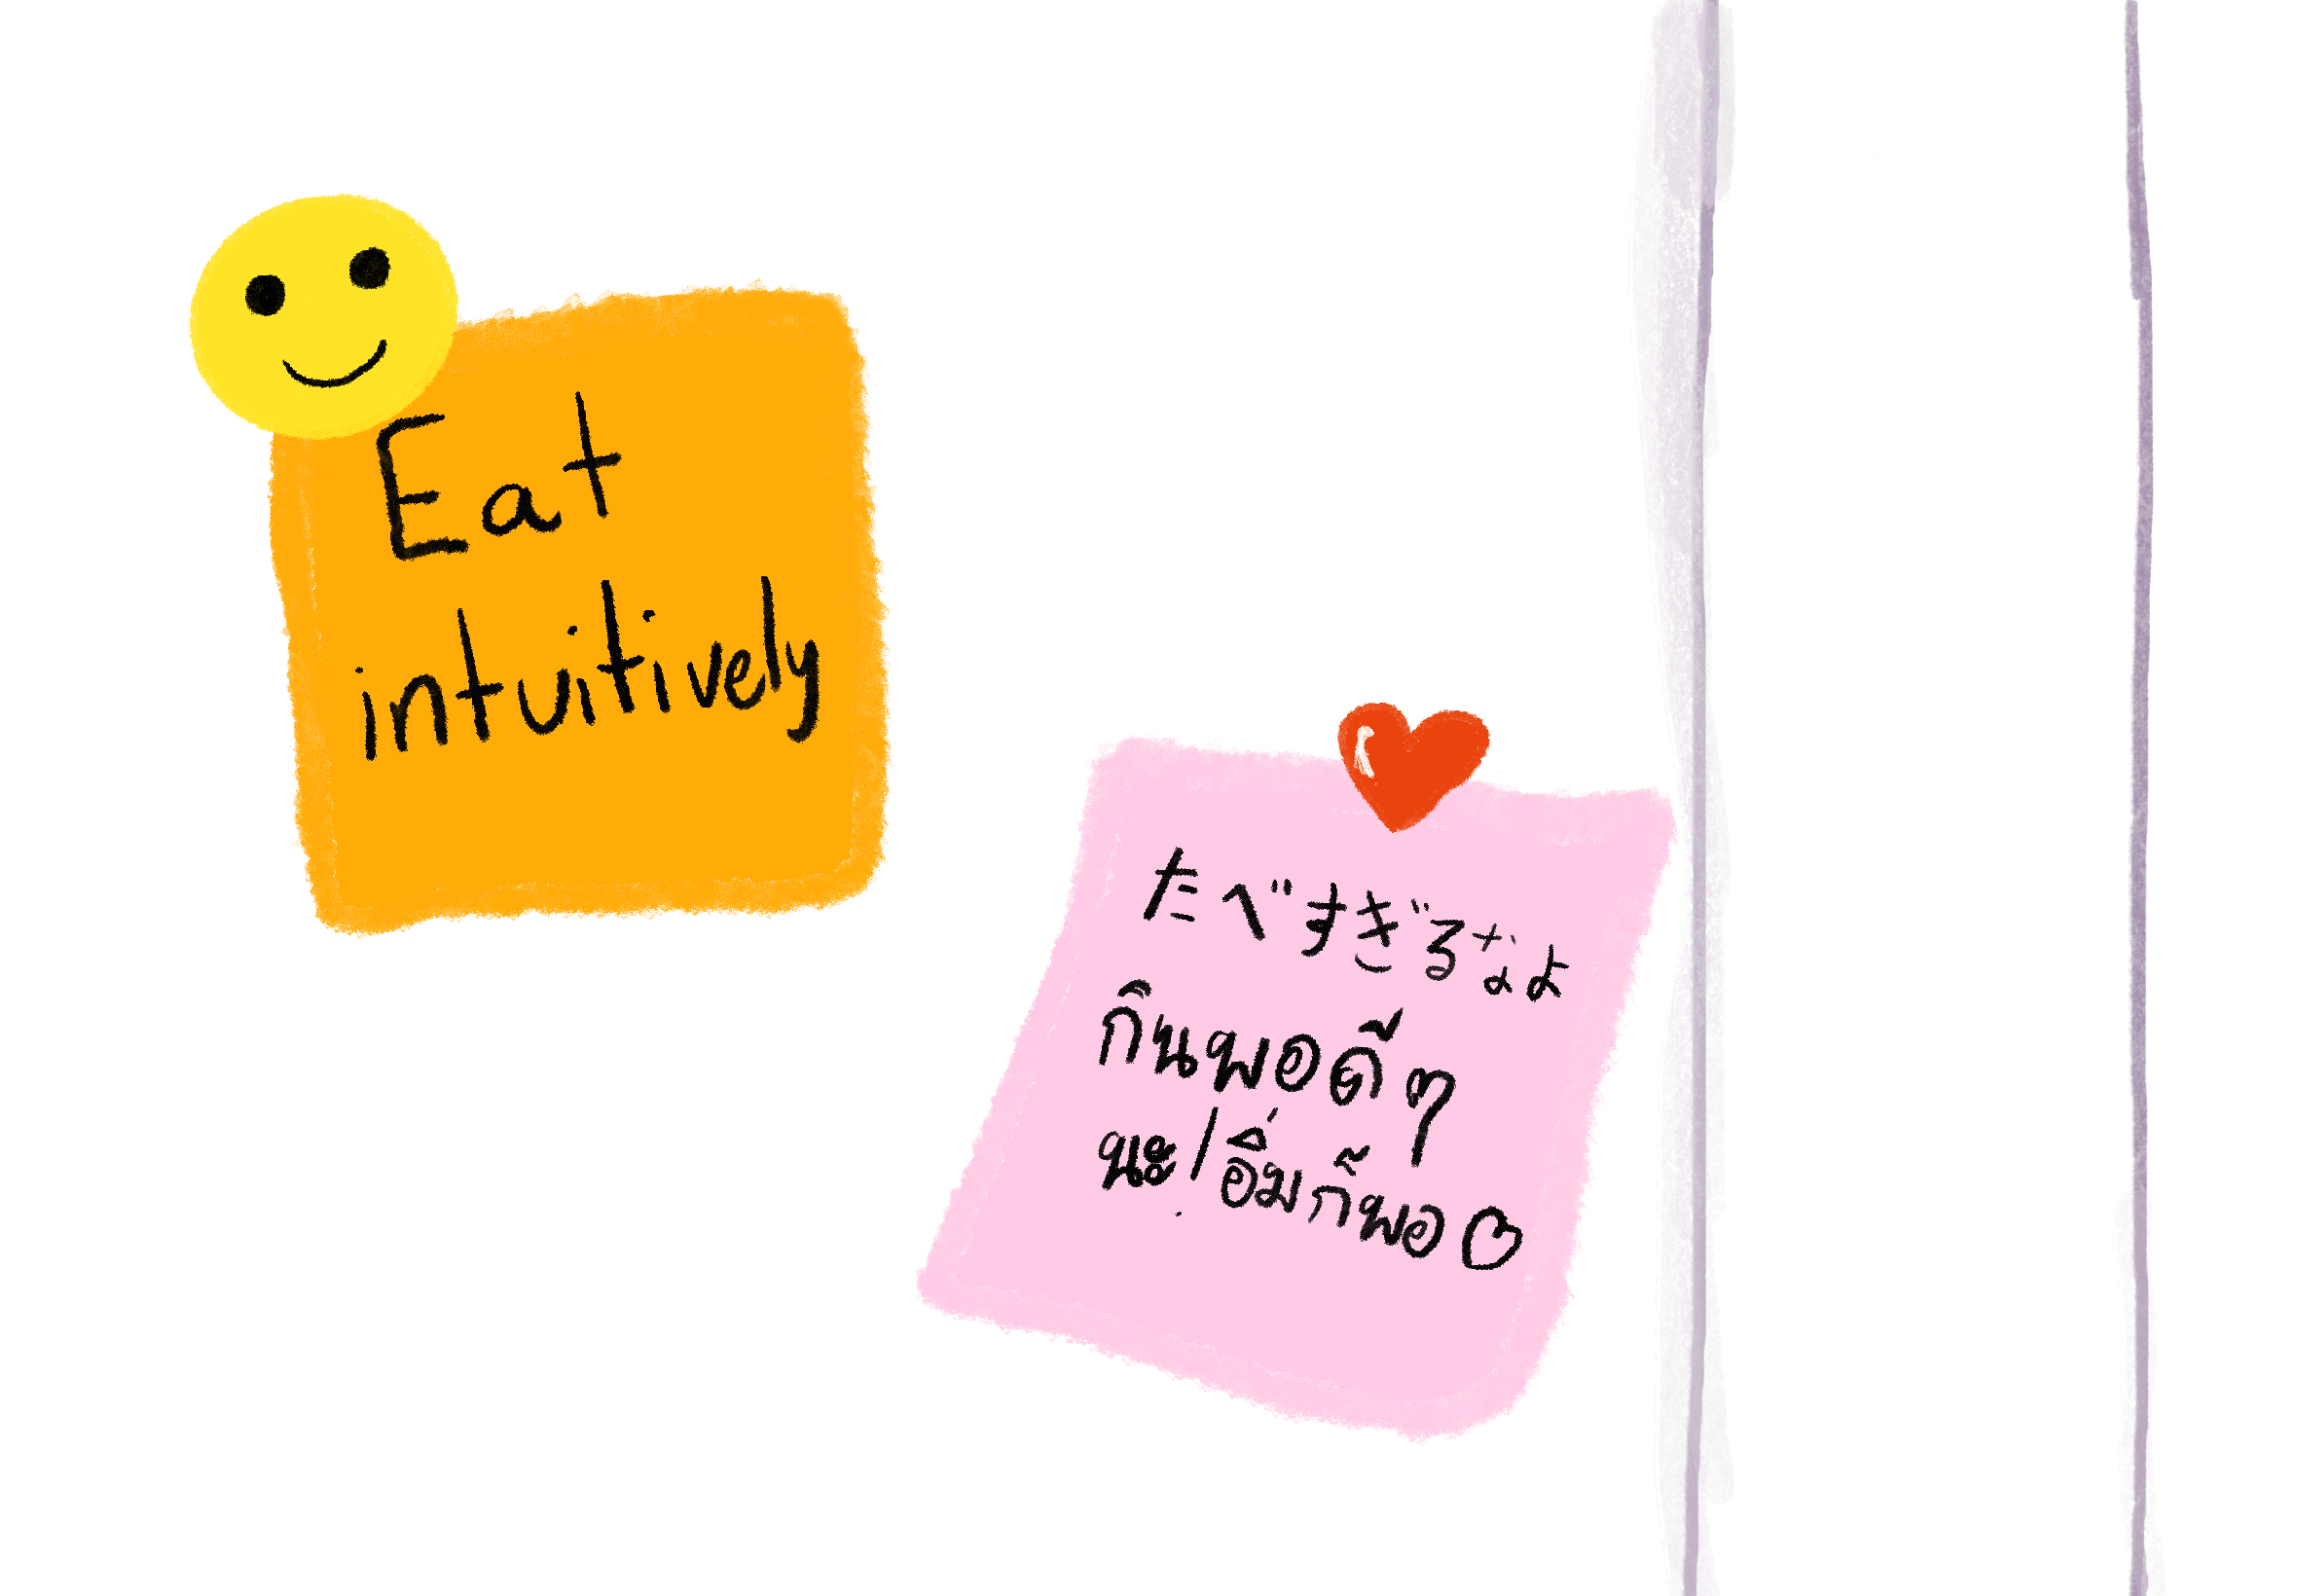 Eat
intuitively
たべすぎるなよ
กินพอดี ๆ
นะ/อิ่มก็พอ